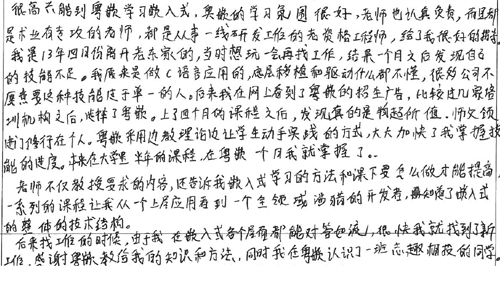 很高兴能到粤嵌学习嵌入式，粤嵌的学习氛围很好，老师也认真负责，而且都
是术业有专攻的老师，都是从事一线研发工作的老资格工程师，给了我很好的指导
我是13年四月份离开老东家的，当时想玩一会再找工作，结果一个月之后发现自己
的技能不足。我原来是做C语言应用的，底层移植和驱动什么都不懂，很多公司不
愿意要这种技能过于单一的人。后来我在网上看到了粤嵌的招生广告，比较过几家培
训机构之后，选择了粤嵌。上了四个月的课程之后，发现真的是物超所值。师父领
进门修行在个人。粤嵌采用边教理论边让学生动手实践的方式，大大加快了我掌握技
能的进度。本来在大学里半年的课程，在粤嵌一个月我就掌握了。
老师不仅教授要求的内容，还告诉我嵌入式学习的方法和课下要怎么做才能提高
一系列的课程让我从一个上层应用者到一个全领域涉猎的开发者，熟知了嵌入式
的整体的技术结构。
后来找工作的时候，由于我在嵌入式各个层面都能对答如流，很快我就找到了新
工作。感谢粤嵌教给我的知识和方法，同时我在粤嵌认识了一班志趣相投的同学。